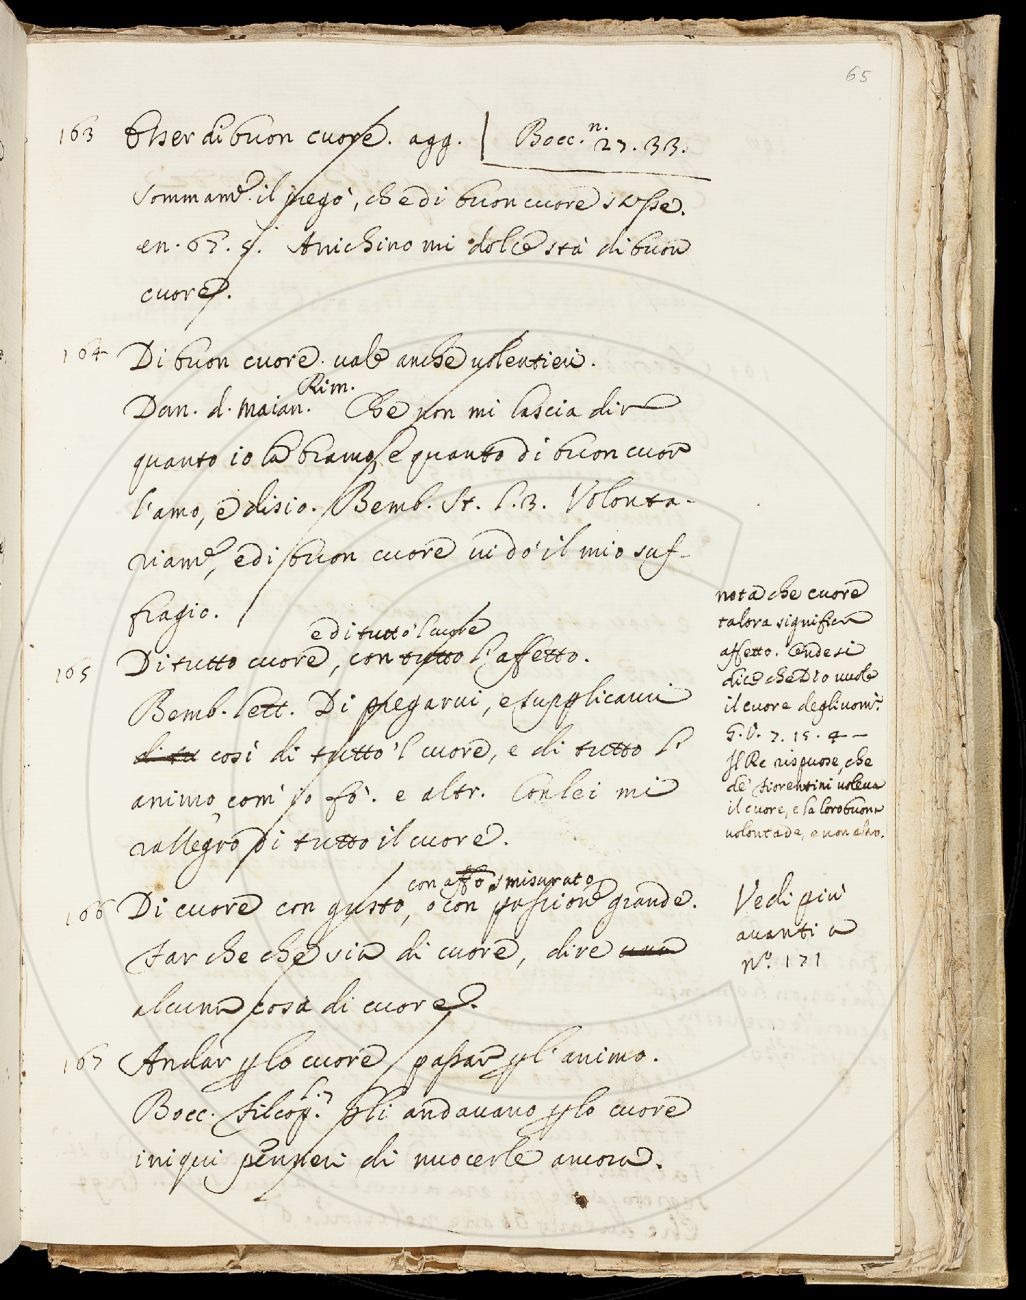 65
163 Esser di buon cuore. agg. | Bocc. n. 27. 33.
Sommam.e il pregò, che di buon cuore stesse.
en. 67. 9. Anichino mi dolce stà di buon
cuore.
164 Di buon cuore. vale anche volentieri.
Dan. d. Maian. Rim. Che non mi lascia dir
quanto io la bramo, e quanto di buon cuor
l'amo, e disio. Bemb. St. l. 3. Volonta-
riam.e, e di buon cuore vi dò il mio suf-
fragio.
e di tutto 'l cuore
165 Di tutto cuore, con tutto l'affetto.
Bemb. lett. Di pregarvi, e supplicarvi
di tu così di tutto 'l cuore, e di tutto l'
animo, com' io fò. e altr. Con lei mi
rallegro di tutto il cuore.
con affo smisurato
166 Di cuore con gusto, o con passione grande.
Far che che sia di cuore, dire una
alcuna cosa di cuore.
167 Andar p lo cuore, passar p l'animo.
Bocc. Filocop. Gli andavano p lo cuore
iniqui pensieri di nuocerle ancora.
nota che cuore
talora significa
affetto. Onde si
dice che Dio vuole
il cuore degli uomi.
G. V. 7. 15. 4
Il Re rispuose, che
de' Fiorentini voleva
il cuore, e la loro buona
volontade, e non altro.
Vedi più
avanti a
N.o 171